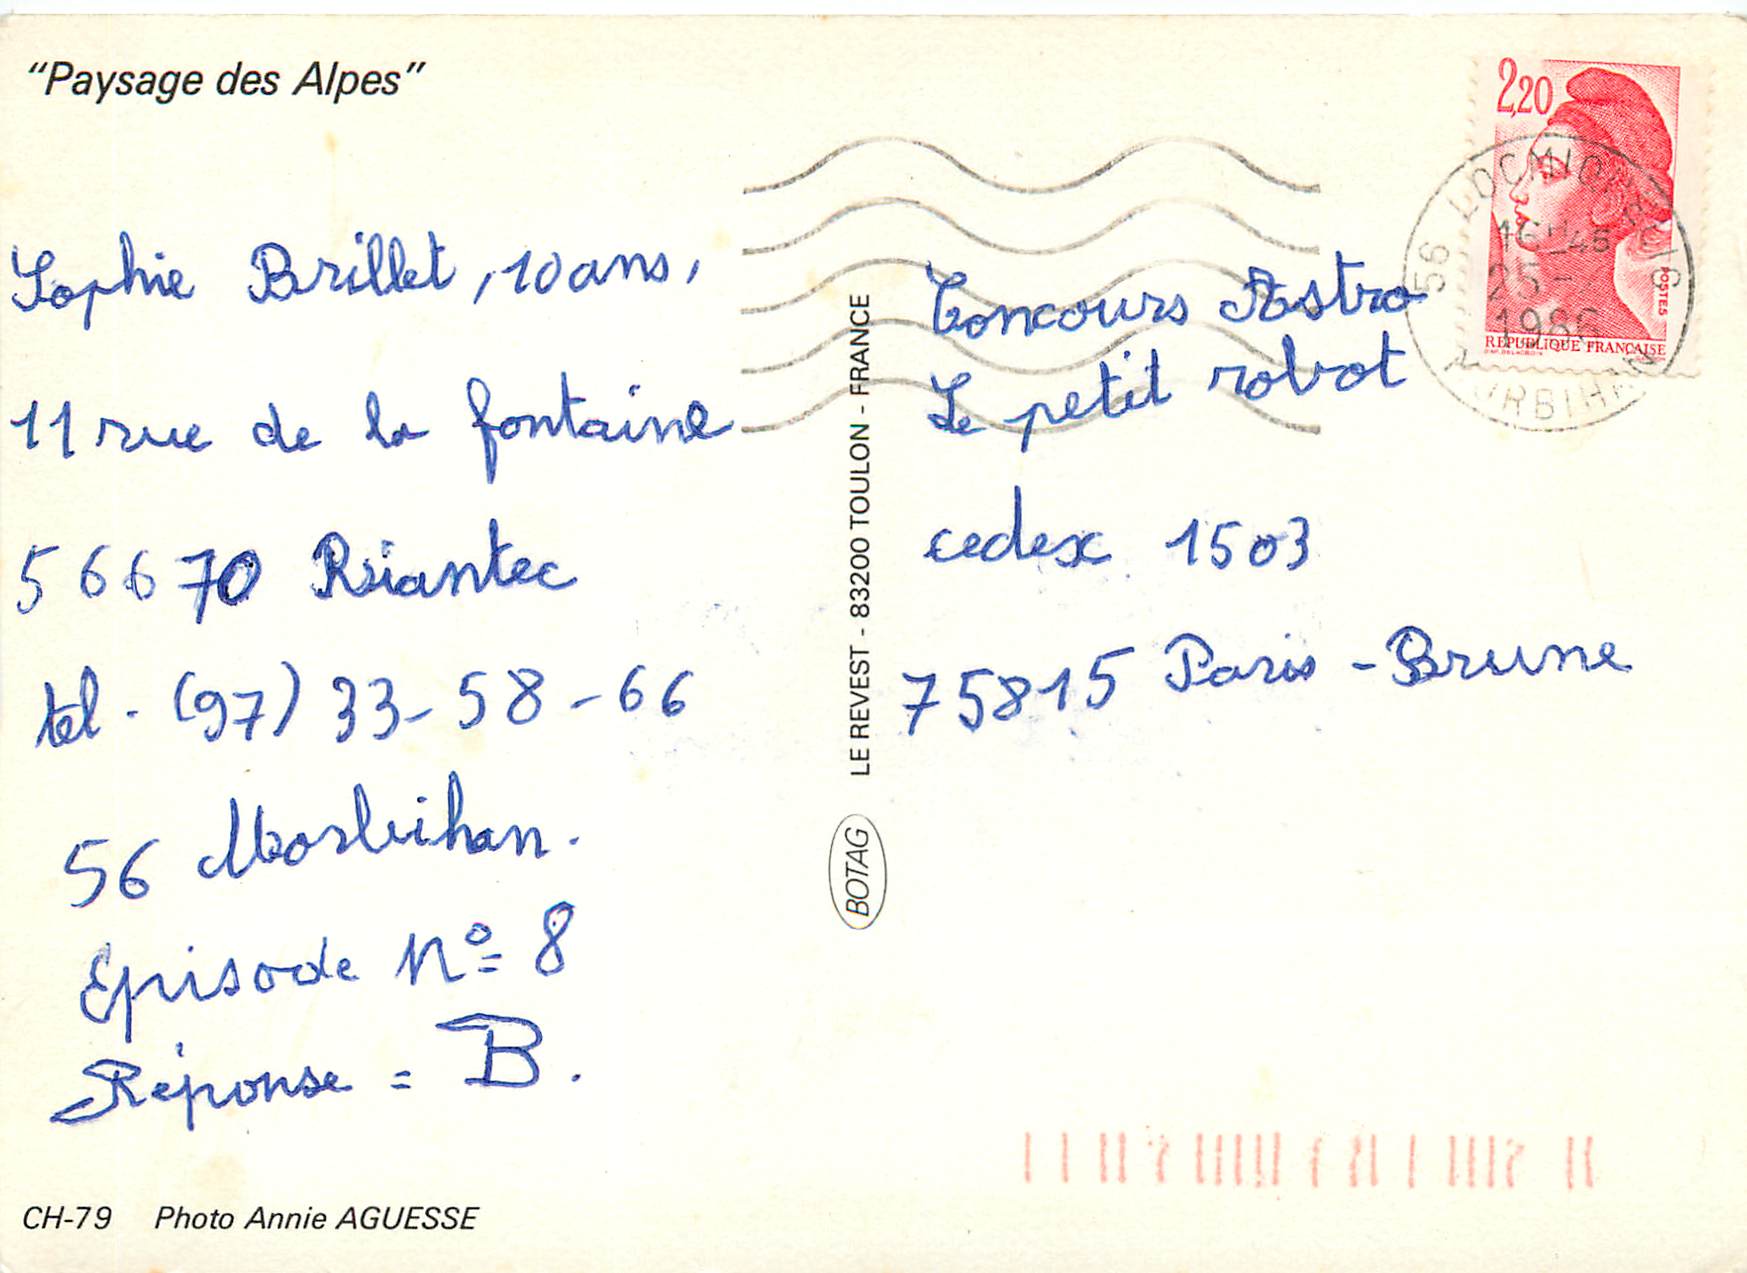 "Paysage des Alpes"
Sophie Brillet, 10 ans,
11 rue de la fontaine
56670 Riantec
tel. (97) 33-58-66
56 Morbihan.
Episode N° 8
Réponse = B.
CH-79 Photo Annie AGUESSE
LE REVEST - 83200 TOULON - FRANCE
BOTAG
2,20
POSTES
REPUBLIQUE FRANÇAISE
56 LOCMIQUELIC
16H45
25-
1986
MORBIHAN
Concours Astro
Le petit robot
cedex 1503
75815 Paris - Brune